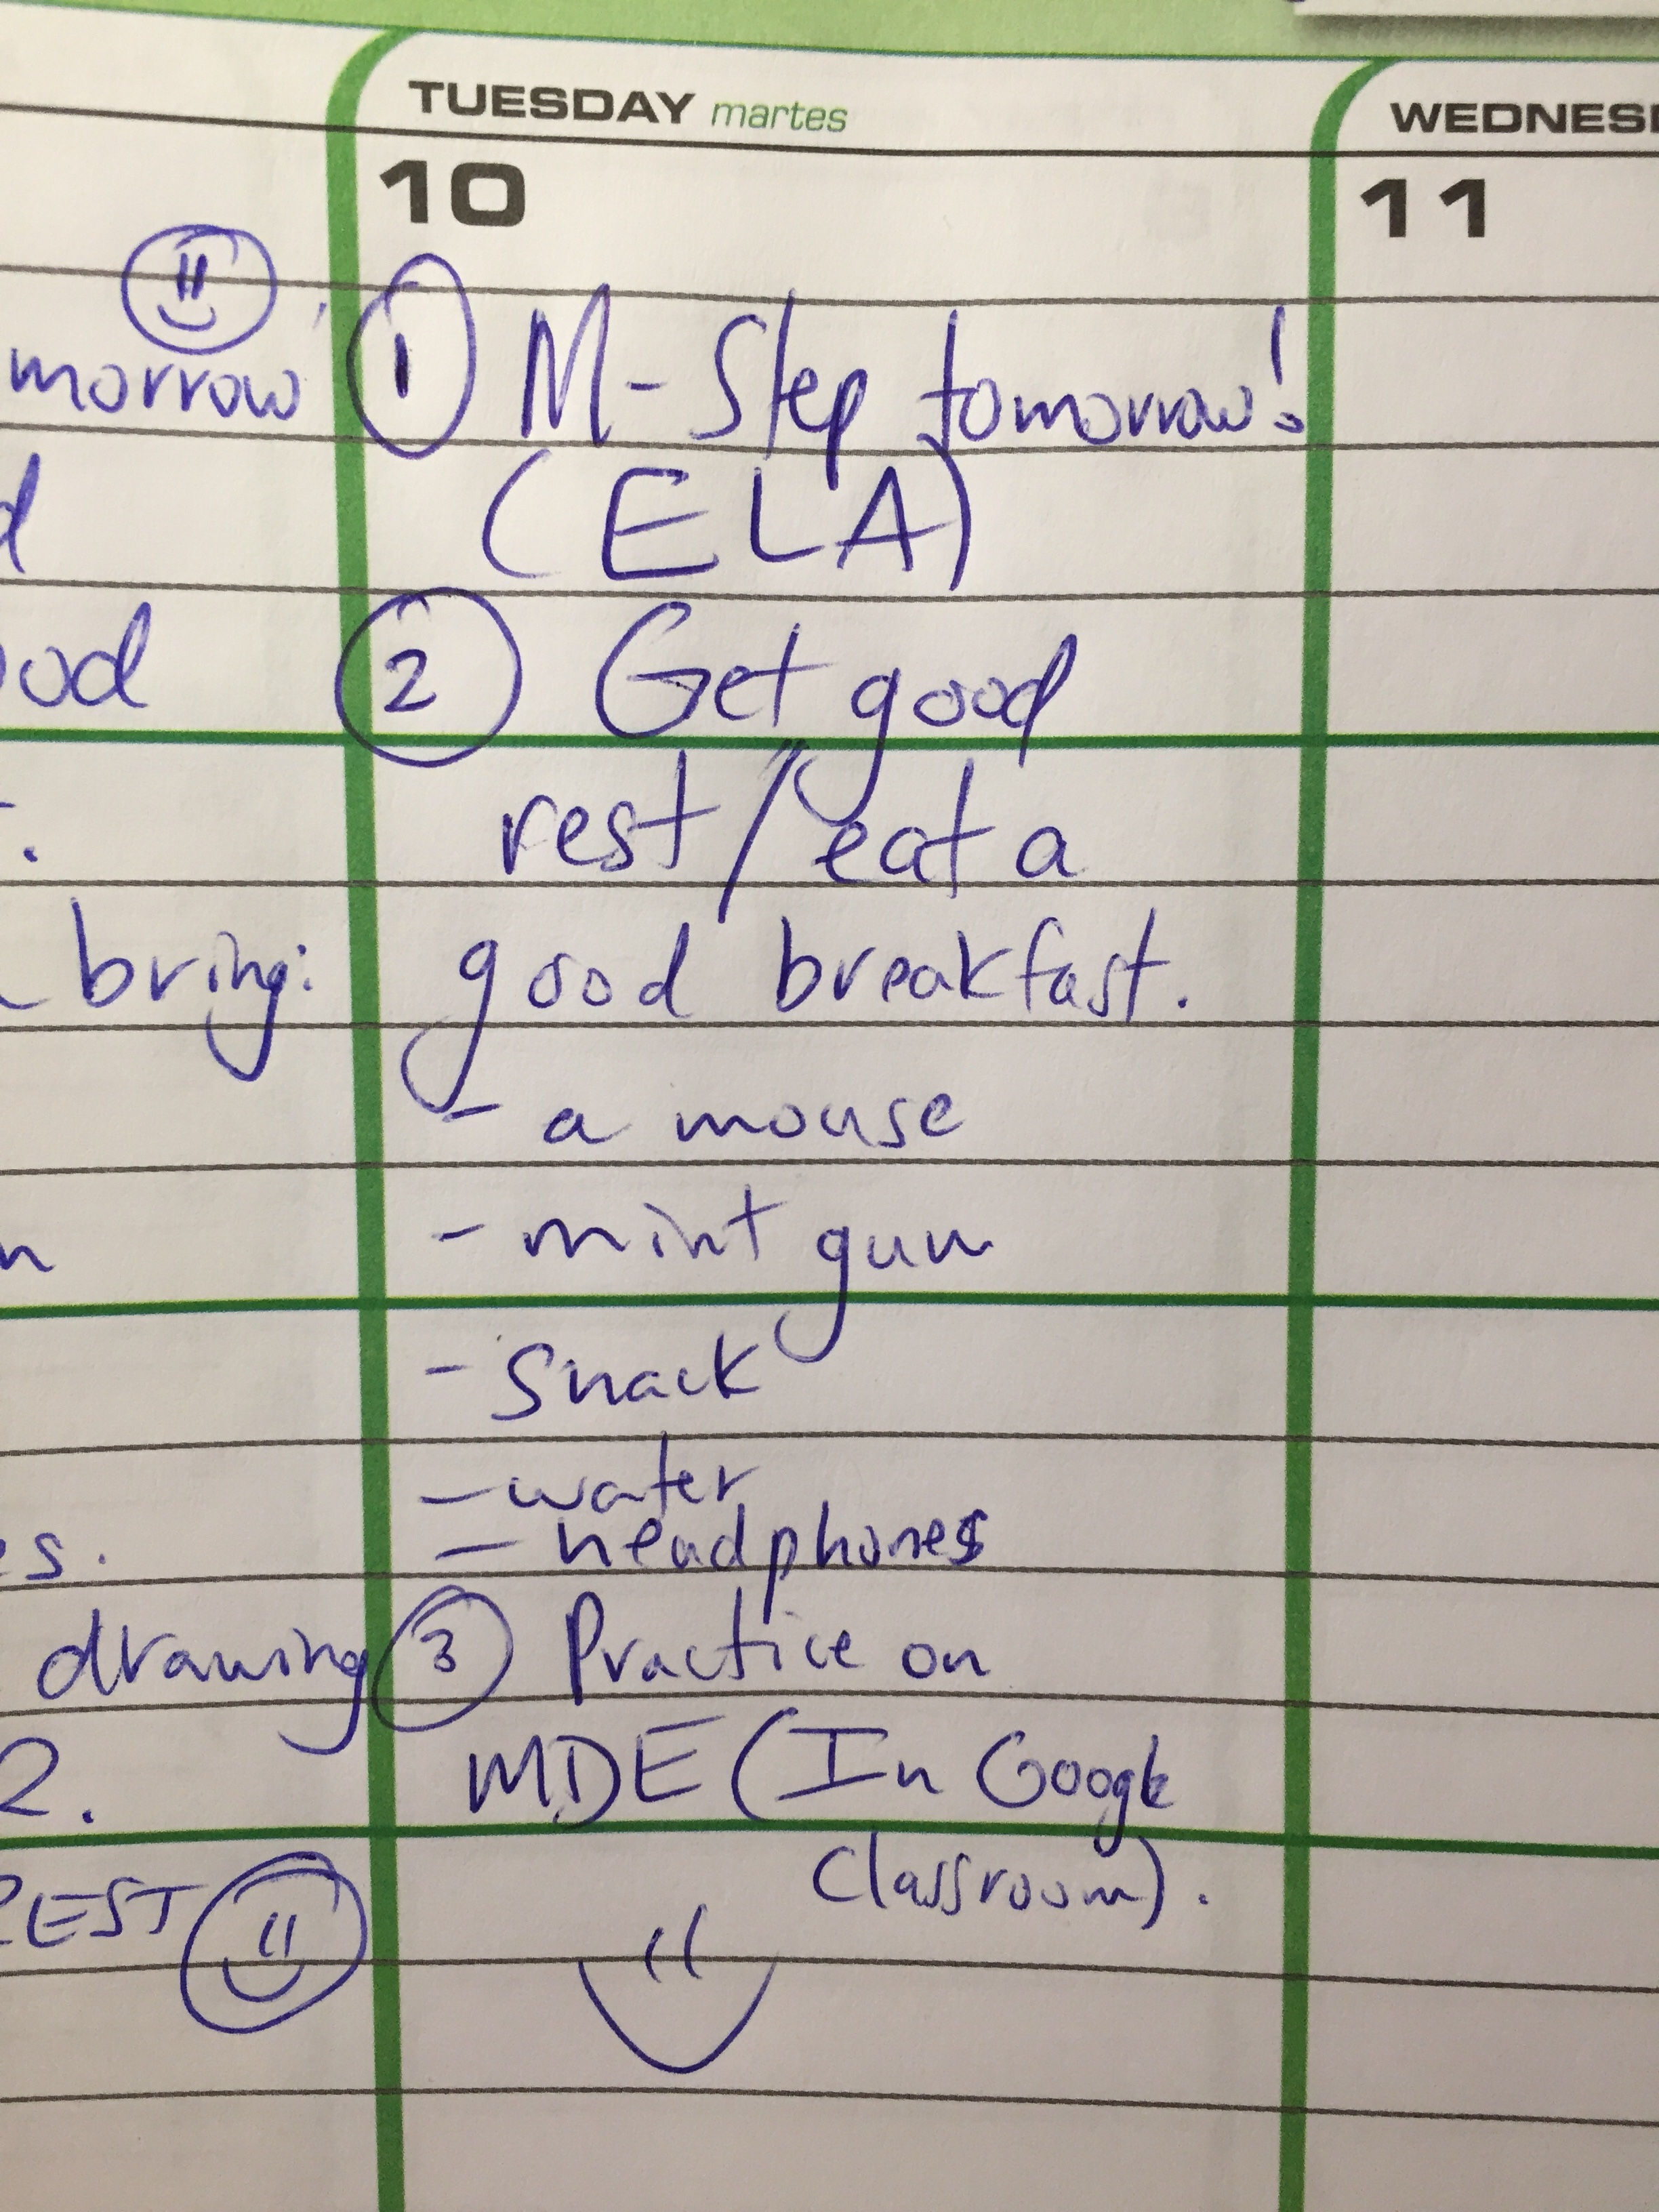 TUESDAY martes
10
① M-Step tomorrow!
(ELA)
② Get good
rest/eat a
good breakfast.
- a mouse
- mint gum
- Snack
- water
- headphones
③ Practice on
MDE (In Google
Classroom).
morrow
d
ood
bring:
n
es.
drawing
2.
REST
WEDNES
11